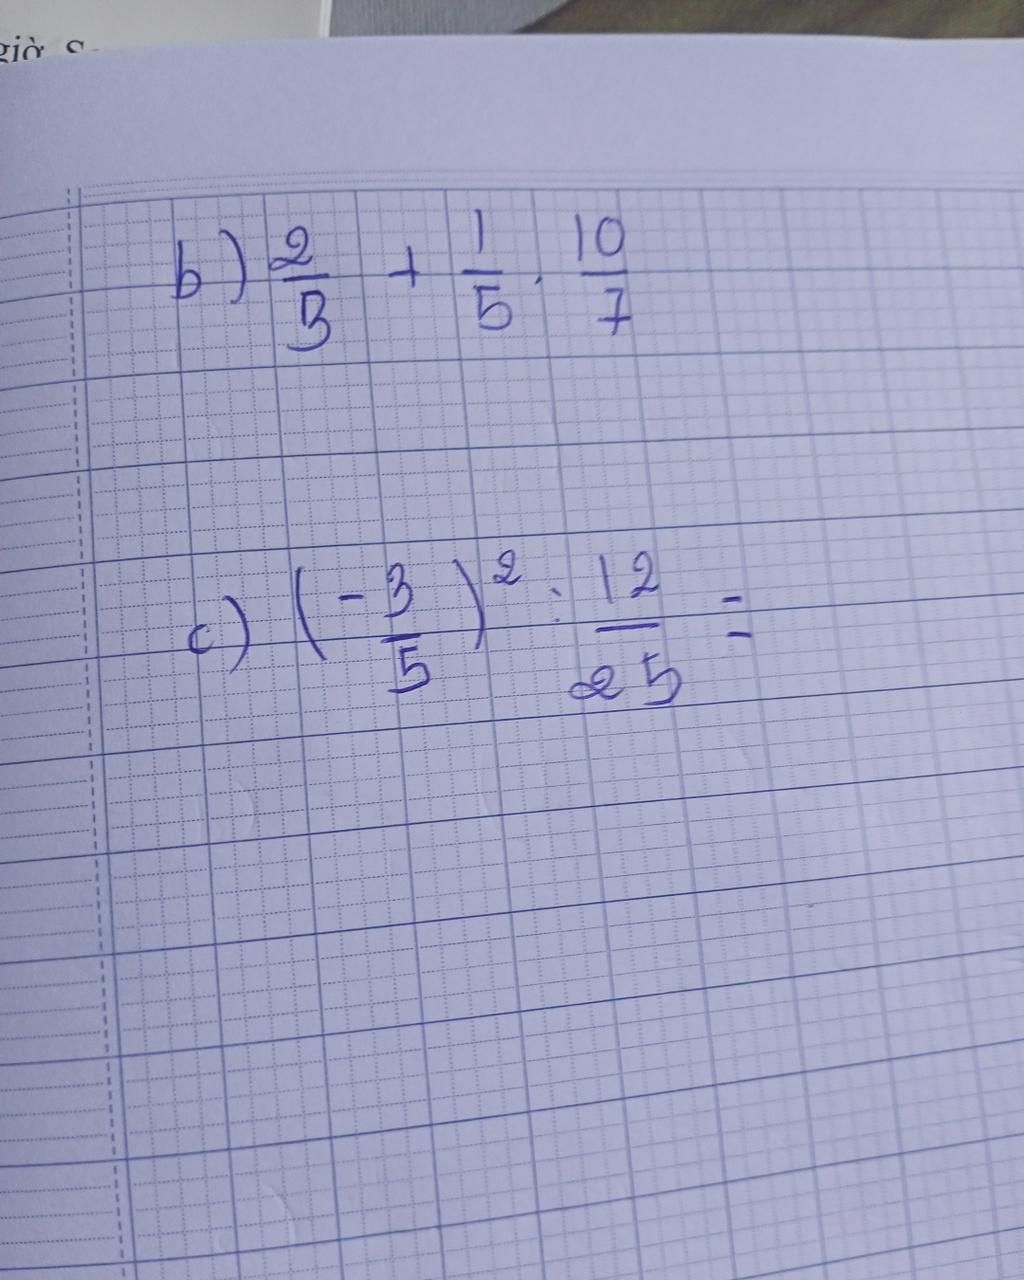 giờ
b) 2/3 + 1/5 . 10/7
c) (-3/5)² : 12/25 =